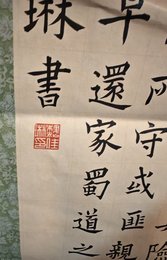 所守或匪親
早還家蜀道之
琳書